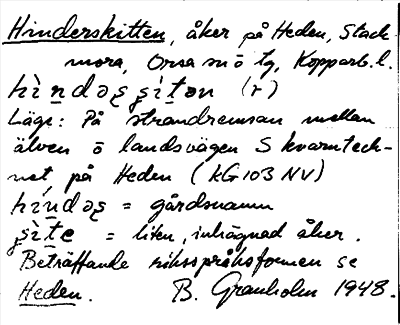 Hinderskitten, åker på Heden, Stack-
mora, Orsa sn o tg, Kopparb. l.
hìndəʂ ʂi̇̀tən (r)
Läge: På strandremsan mellan
älven o landsvägen S kvarnteck-
net på Heden (kG 103 NV)
híndəʂ = gårdsnamn
ʂìte = liten, inhägnad åker.
Beträffande riksspråksformen se
Heden. B. Granholm 1948.